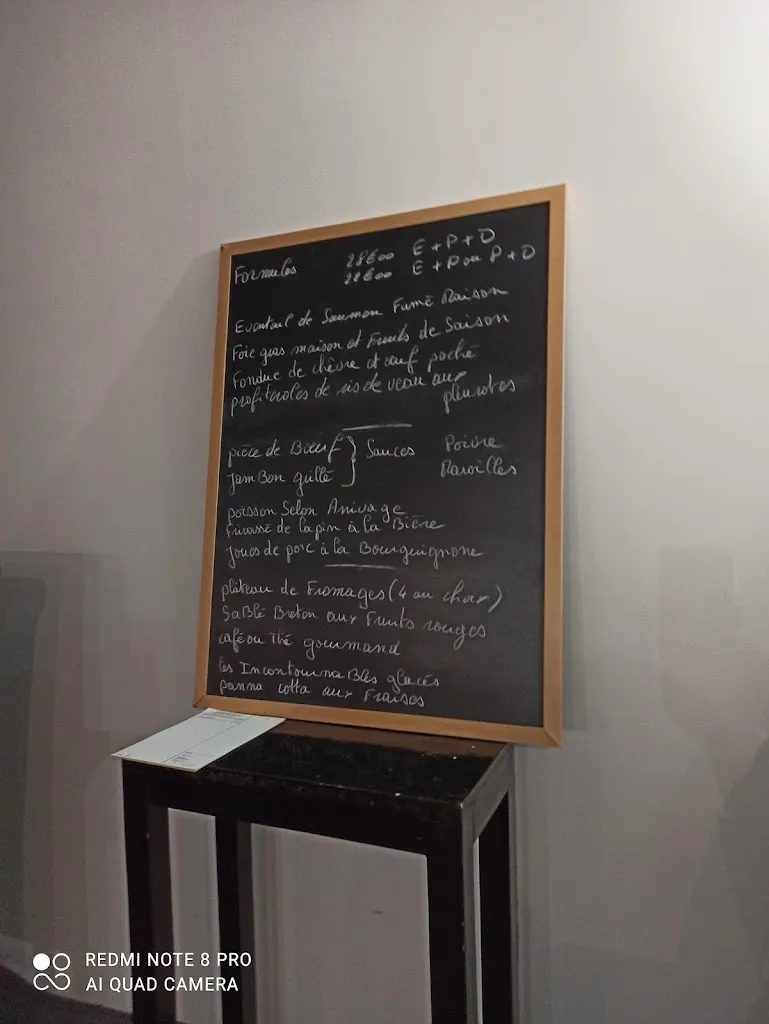 Formules 28€00 E + P + D
22€00 E + P ou P + D
Eventail de Saumon Fumé Maison
Foie gras maison et Fruits de Saison
Fondue de chèvre et œuf poché
profiteroles de ris de veau aux
pleurotes
pièce de Bœuf } Sauces Poivre
Jambon grillé Maroilles
poisson Selon Arrivage
Fricassé de lapin à la Bière
Joues de porc à la Bourguignonne
plateau de Fromages (4 au choix)
Sablé Breton aux Fruits rouges
café ou thé gourmand
les Incontournables glacés
panna cotta aux Fraises
REDMI NOTE 8 PRO
AI QUAD CAMERA